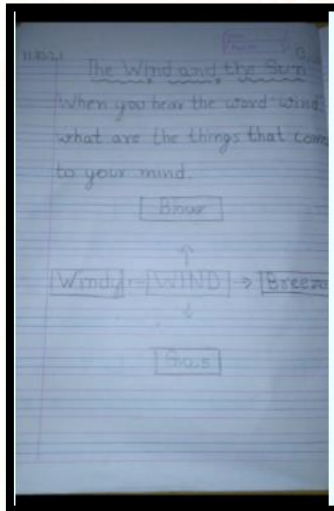 11.10.21
The Wind and the Sun
When you hear the word wind
what are the things that come
to your mind.
Blow
Windy WIND → Breeze